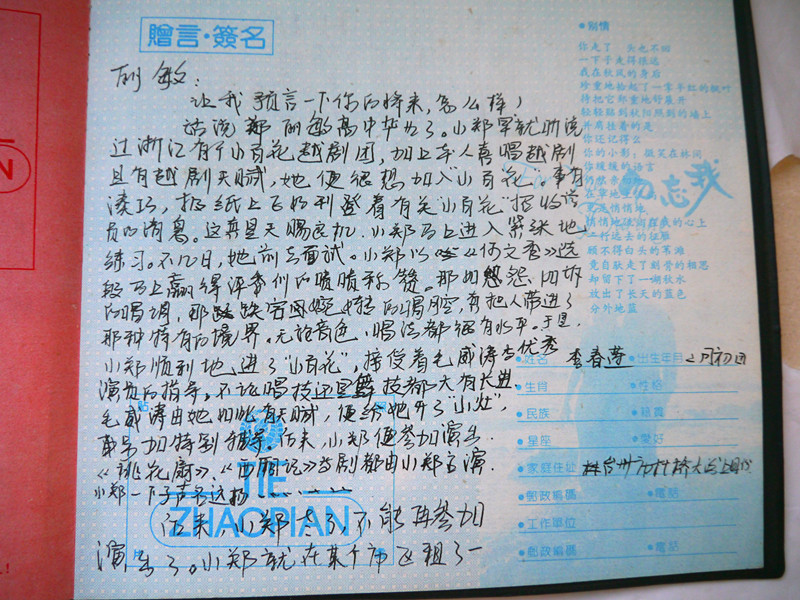 贈言·簽名
丽敏:
让我预言一下你的将来,怎么样?
话说郑丽敏高中毕业了。小郑早就听说
过浙江有个小百花越剧团,加上本人喜唱越剧
且有越剧天赋,她便很想加入"小百花"。事有
凑巧,报纸上飞的刊登着有关"小百花"招收演
员的消息。这真是天赐良机,小郑马上进入紧张地
练习。不几日,她前去面试。小郑以《何文秀》选
段马上赢得评委们的啧啧称赞。那如怨
的唱调,那婉转的唱腔,真把人带进了
那种特有的境界。无论音色,唱法都很有水平。于是,
小郑顺利地进了"小百花",接受着毛威涛等优秀
演员的指导。不论唱技还是舞技都大有长进。
毛威涛由她如此有天赋,便给她开了"小灶",
单呆加特别辅导。后来,小郑便参加演出。
《桃花扇》、《西厢记》等剧都由小郑主演。
小郑一下子声名远扬…………
后来,小郑老了,不能再参加
演出了。小郑就在某个市区租了一
TIE
ZHAOPIAN
●别情
你走了 头也不回
一下子走得很远
我在秋风的身后
珍重地拾起了一掌半红的枫叶
待把它郑重地舒展开
轻轻贴到秋阳照到的墙上
你还记得么
你的小影:微笑在林间
勿忘我
顾不得白头的芦滩
竟自驮走了刻骨的相思
却留下了一湖秋水
放出了长天的蓝色
分外地蓝
●姓名 李春萍 ●出生年月 2月初四
●生肖 ●性格
●民族 ●格言
●星座 ●爱好
●家庭住址
●郵政編碼 ●電話
●工作單位
●郵政編碼 ●電話